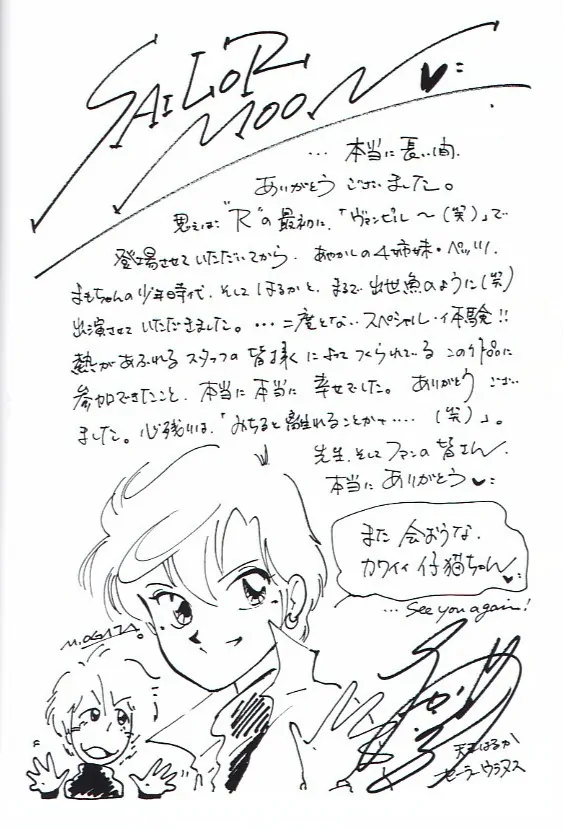 SAILOR
MOON
… 本当に長い間、
ありがとうございました。
思えば "R"の最初に、「ヴァンピル〜(笑)」で
登場させていただいてから、あやかしの4姉妹・ペッツ、
まもちゃんの少年時代、そしてはるかと、まるで出世魚のように(笑)
出演させていただきました。…二度とないスペシャル・体験!!
熱があふれるスタッフの皆様によってつくられているこの作品に
参加できたこと、本当に本当に幸せでした。ありがとうござい
ました。心残りは、「みちると離れることかナ…… (笑)」。
先生、そしてファンの皆さん、
本当にありがとう
また会おうな、
カワイイ仔猫ちゃん
… See you again!
M.OGATA.
天王はるか
セーラーウラヌス